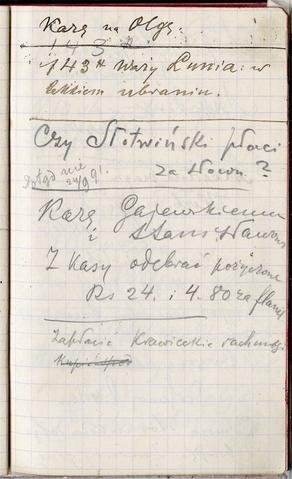 Karę na Olgę.
143 ℔
143 ℔ Waży Lunia: w
lekkiem ubraniu.
Czy Słotwiński płaci
za słown.?
Dotąd nie
24/9 91.
Karę Gajewskiemu
i Stanisławowi
Z Kasy odebrać pożyczone
Rs 24. i 4.80 za
Zapłacić Krawieckie rachunki